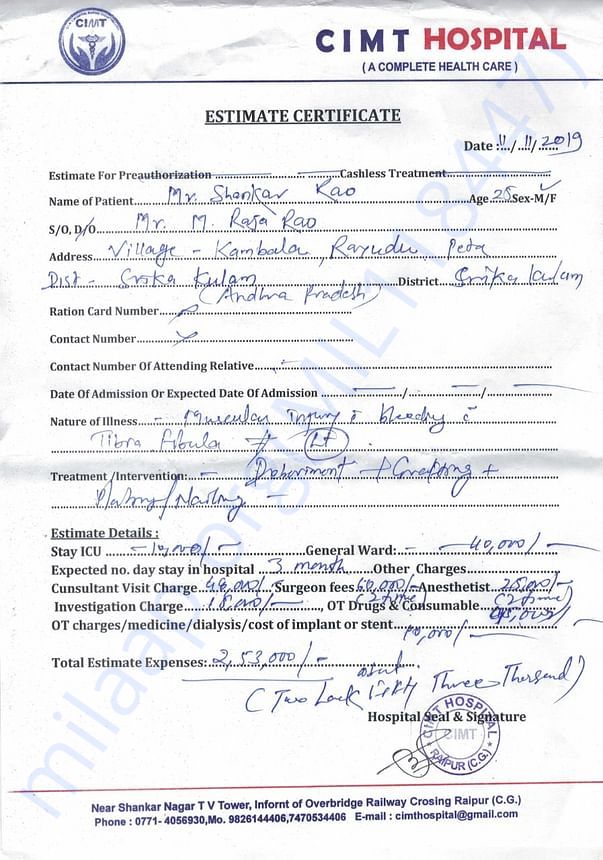 CIMT
CIMT HOSPITAL
( A COMPLETE HEALTH CARE )
ESTIMATE CERTIFICATE
Date :11/11/2019
Estimate For Preauthorization Cashless Treatment
Name of Patient Mr. Shankar Rao Age 25 Sex-M/F
S/O, D/O Mr. M. Raja Rao
Address Village - Kambala Rayudu Peta
Dist - Srika Kulam District Srika kulam
(Andhra Pradesh)
Ration Card Number
Contact Number
Contact Number Of Attending Relative
Date Of Admission Or Expected Date Of Admission / /
Nature of Illness - Muscular Injury bleeding
Tibia fibula # (Lt)
Treatment /Intervention: - + Grafting +
Plating/Nailing -
Estimate Details :
Stay ICU General Ward:- 40,000/-
Expected no. day stay in hospital 3 month Other Charges
Cunsultant Visit Charge 48,000/- Surgeon fees 60,000/- Anesthetist 25,000/-
(2 time) (2 time)
Investigation Charge 18,000/- , OT Drugs & Consumable
OT charges/medicine/dialysis/cost of implant or stent
Total Estimate Expenses: 2,53,000/-
(Two Lack fifty Three Thersend)
Hospital Seal & Signature
CIMT HOSPITAL
CIMT
RAIPUR (C.G.)
Near Shankar Nagar T V Tower, Infornt of Overbridge Railway Crosing Raipur (C.G.)
Phone : 0771- 4056930,Mo. 9826144406,7470534406 E-mail : cimthospital@gmail.com